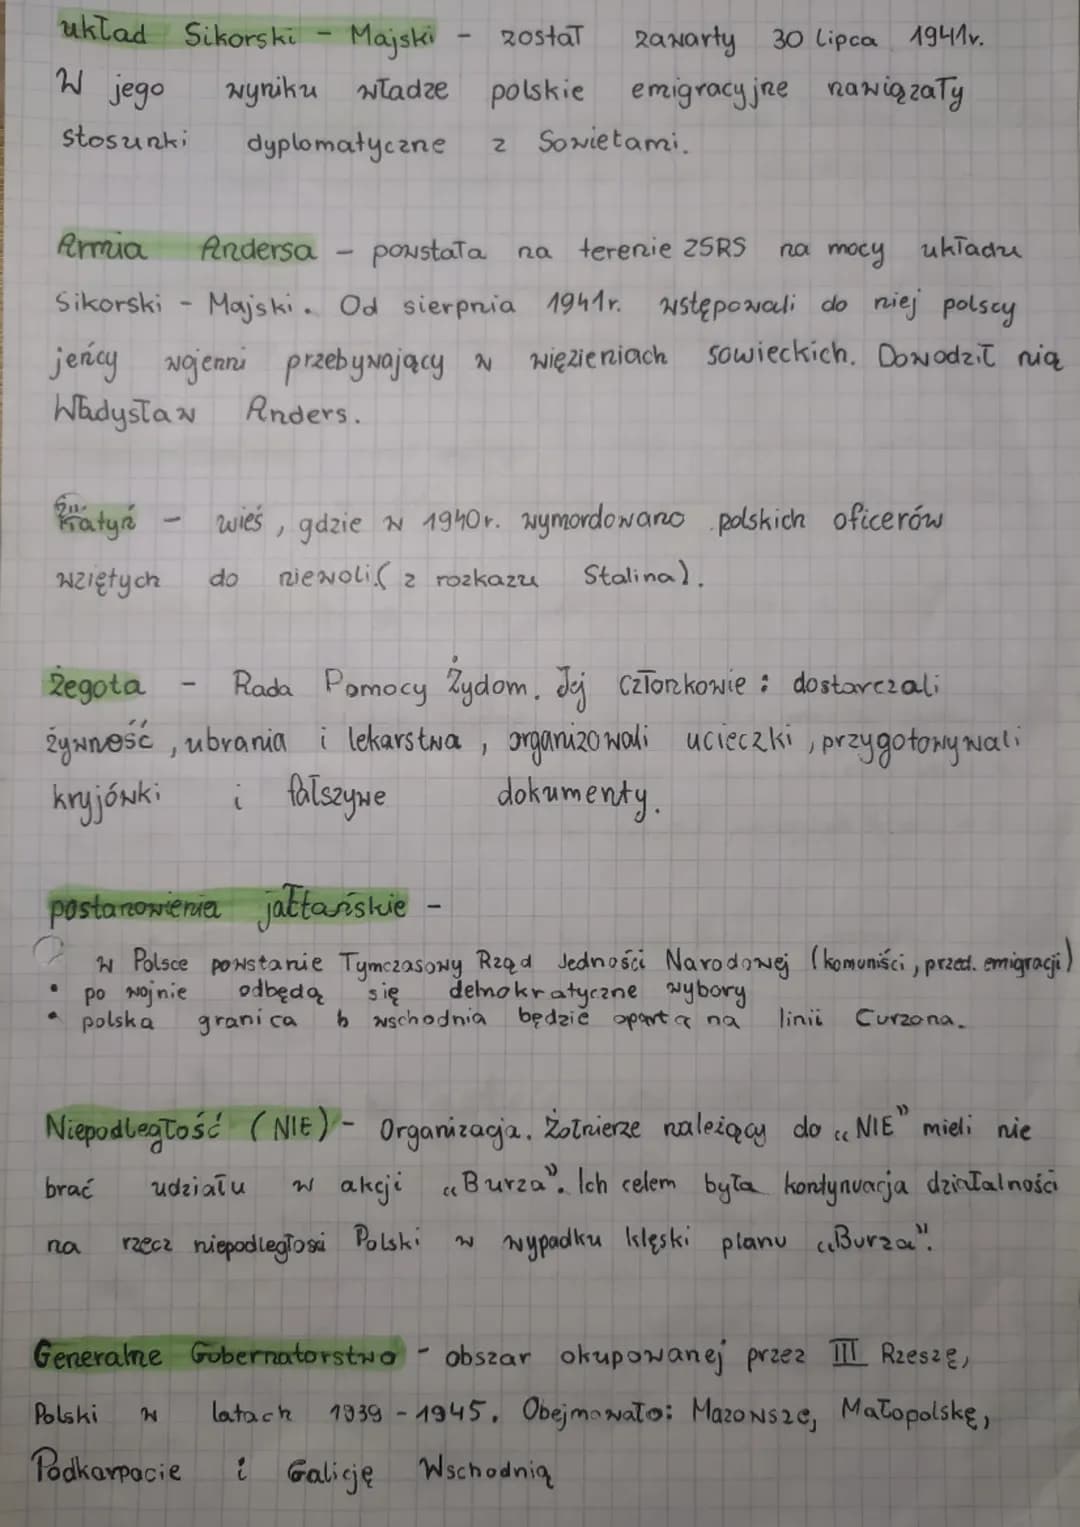 układ Sikorski - Majski - został zawarty 30 lipca 1941r.
W jego wyniku władze polskie emigracyjne nawiązały
stosunki dyplomatyczne z Sowietami.
Armia Andersa - powstała na terenie ZSRS na mocy układu
Sikorski - Majski. Od sierpnia 1941r. wstępowali do niej polscy
jeńcy wojenni przebywający w więzieniach sowieckich. Dowodził nią
Władysław Anders.
Katyń - wieś, gdzie w 1940r. wymordowano polskich oficerów
wziętych do niewoli (z rozkazu Stalina).
Żegota - Rada Pomocy Żydom. Jej członkowie: dostarczali
żywność, ubrania i lekarstwa, organizowali ucieczki, przygotowywali
kryjówki i fałszywe dokumenty.
postanowienia jałtańskie -
w Polsce powstanie Tymczasowy Rząd Jedności Narodowej (komuniści, przed. emigracji)
• po wojnie odbędą się demokratyczne wybory
• polska granica wschodnia będzie oparta na linii Curzona.
Niepodległość (NIE) - Organizacja. Żołnierze należący do „NIE” mieli nie
brać udziału w akcji „Burza”. Ich celem była kontynuacja działalności
na rzecz niepodległości Polski w wypadku klęski planu „Burza”.
Generalne Gubernatorstwo - obszar okupowanej przez III Rzeszę,
Polski w latach 1939 - 1945. Obejmowało: Mazowsze, Małopolskę,
Podkarpacie i Galicję Wschodnią